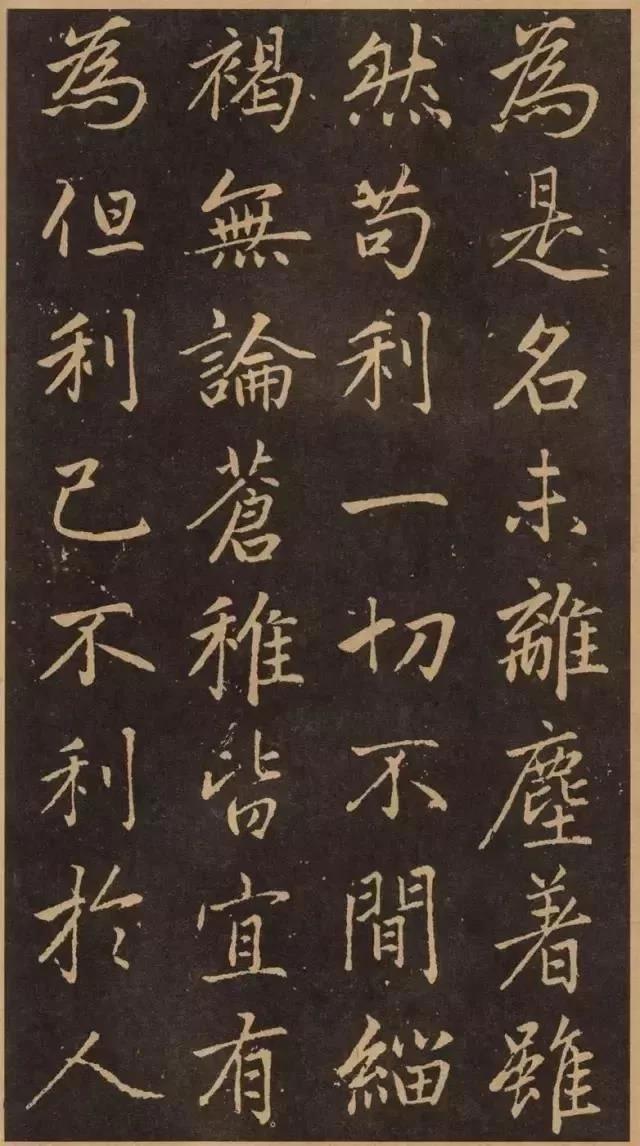 為是名未離塵著雖
然苟利一切不間緇
褐無論蒼稚皆宜有
為但利己不利於人